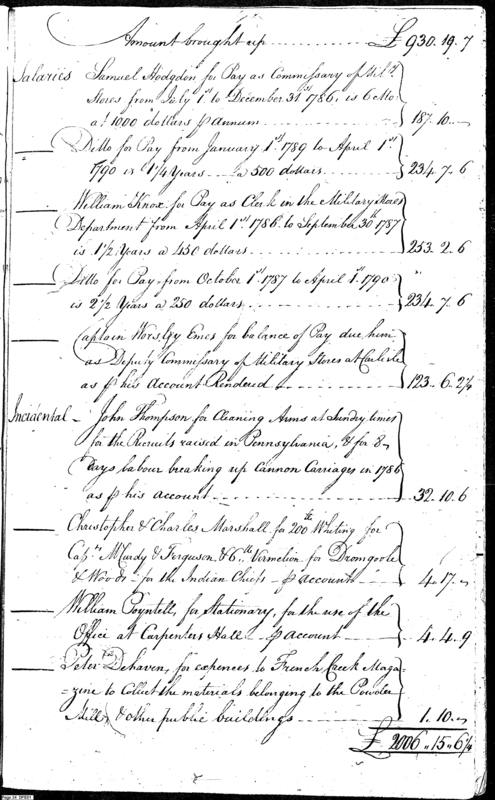 Amount brought up £930.19.7
Salaries Samuel Hodgdon for Pay as Commissary of Mily.
Stores from July 1st to December 31st 1786, is 6 Mo.
a 1000 dollars ⅌ annum 187.10.-
Ditto for Pay from January 1st 1789 to April 1st
1790 is 1 1/4 Years a 500 dollars 234.7.6
William Knox for Pay as Clerk in the Military Stores
Department from April 1st 1786 to September 30th 1787
is 1 1/2 Years a 450 dollars 253.2.6
Ditto for Pay from October 1st 1787 to April 1st 1790
is 2 1/2 Years a 250 dollars 234.7.6
Captain Worsley Emes for balance of Pay due him
as Deputy Commissary of Military Stores at Carlisle
as ⅌ his account Rendered 123.6.2 1/4
Incidental - John Thompson for Cleaning Arms at Sundry times
for the Recruits raised in Pennsylvania, & for 8
Days labour breaking up Cannon Carriages in 1786
as ⅌ his account 32.10.6
Christopher & Charles Marshall for 200 lb Whiting for
Capns. McCurdy & Ferguson & 6 lb Vermelion for Dromgoole
& Woods - for the Indian Chiefs - ⅌ accounts 4.17.-
William Poyntell, for Stationary, for the use of the
Office at Carpenters Hall - ⅌ account 4.4.9
Peter Dehaven, for expences to French Creek Maga-
=zine to Collect the materials belonging to the Powder
Mill, & other public buildings 1.10.-
£2006.15.6 1/4